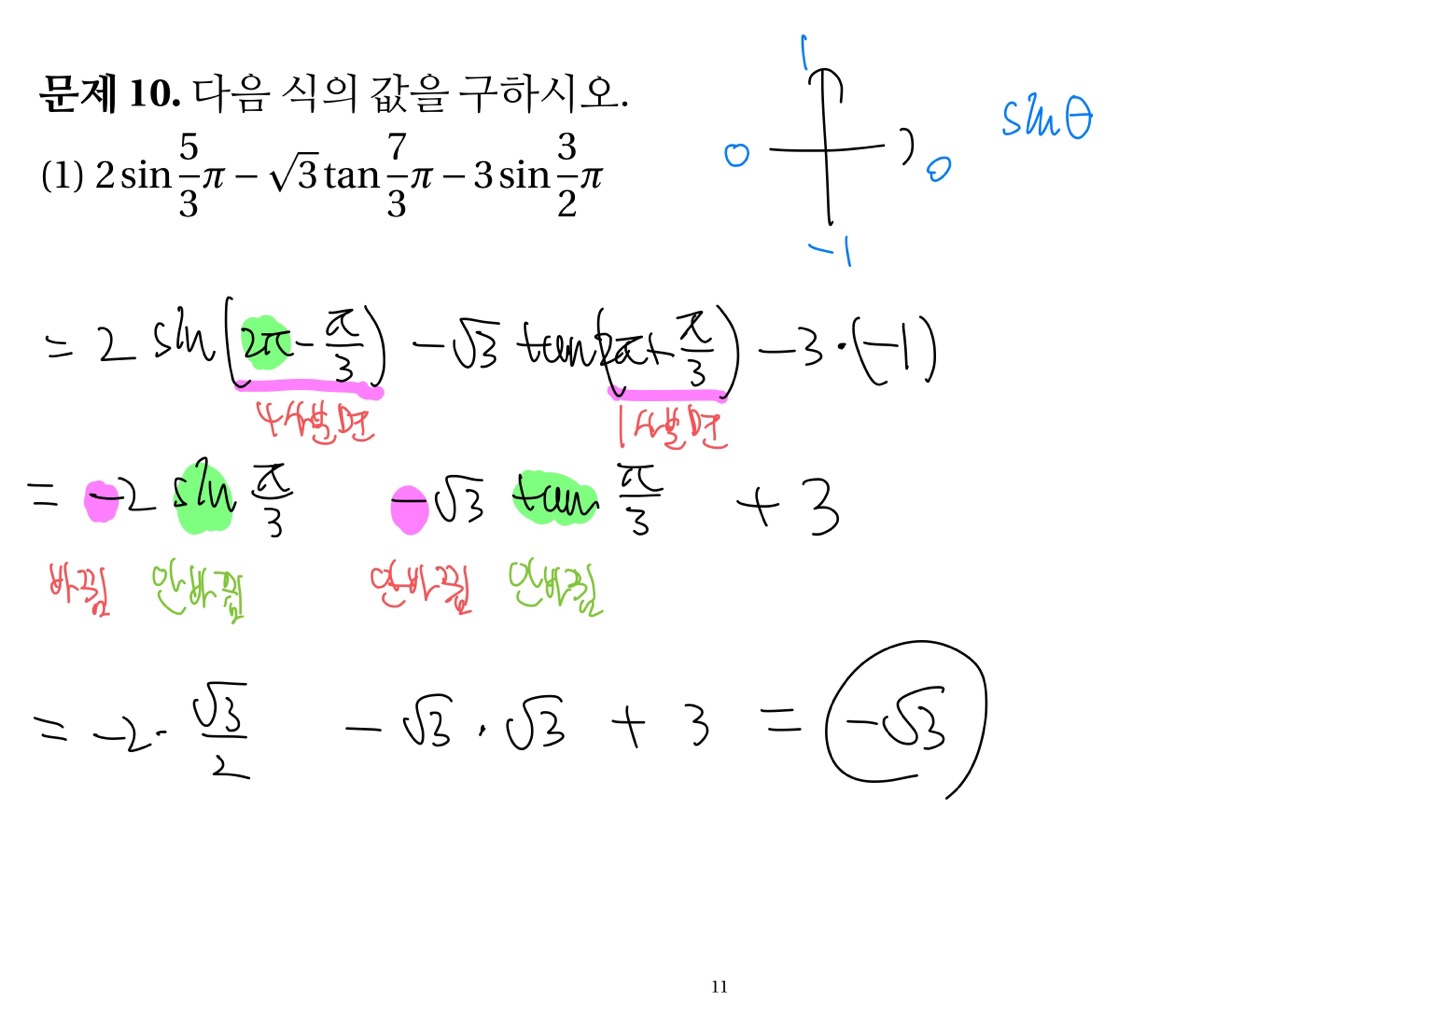 문제 10. 다음 식의 값을 구하시오.
(1) 2 sin 5/3 π − √3 tan 7/3 π − 3 sin 3/2 π
1
0
0
−1
sinθ
= 2 sin(2π − π/3) − √3 tan(2π + π/3) − 3·(−1)
4사분면 1사분면
= −2 sin π/3 − √3 tan π/3 + 3
바뀜 안바뀜 안바뀜 안바뀜
= −2· √3/2 − √3 · √3 + 3 = −√3
11